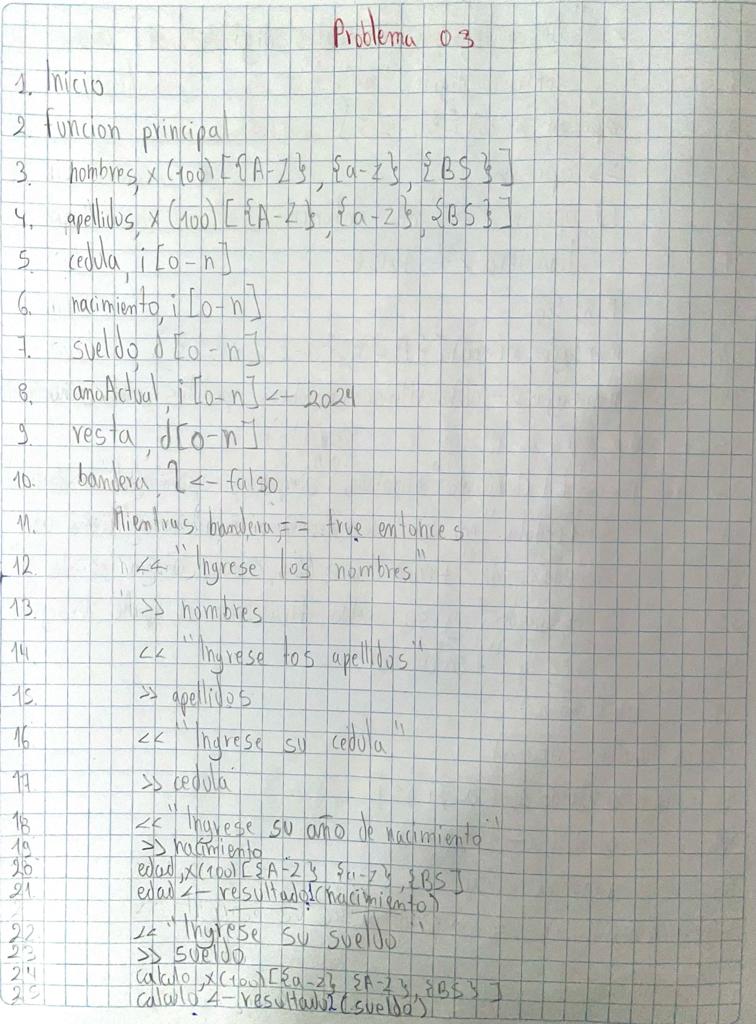 Problema 03
1. Inicio
2. funcion principal
3. nombres, x (100) [{A-Z}, {a-z}, {BS}]
4. apellidos, x (100) [{A-Z}, {a-z}, {BS}]
5. cedula, i [0-n]
6. nacimiento, i [0-n]
7. sueldo, d [0-n]
8. añoActual, i [0-n] <- 2024
9. resta, d[0-n]
10. bandera, l <- falso
11. Mientras bandera, == true entonces
12. << "Ingrese los nombres"
13. >> nombres
14. << "Ingrese los apellidos"
15. >> apellidos
16 << "Ingrese su cedula"
17 >> cedula
18 << "Ingrese su año de nacimiento"
19 >> nacimiento
20 edad, x(100) [{A-Z} {a-z}, {BS]
21. edad <- resultado1(nacimiento)
22 << "Ingrese su sueldo"
23 >> sueldo
24 calculo, x(100) [{a-z}, {A-Z}, {BS}]
25 calculo <- resultado2(sueldo)